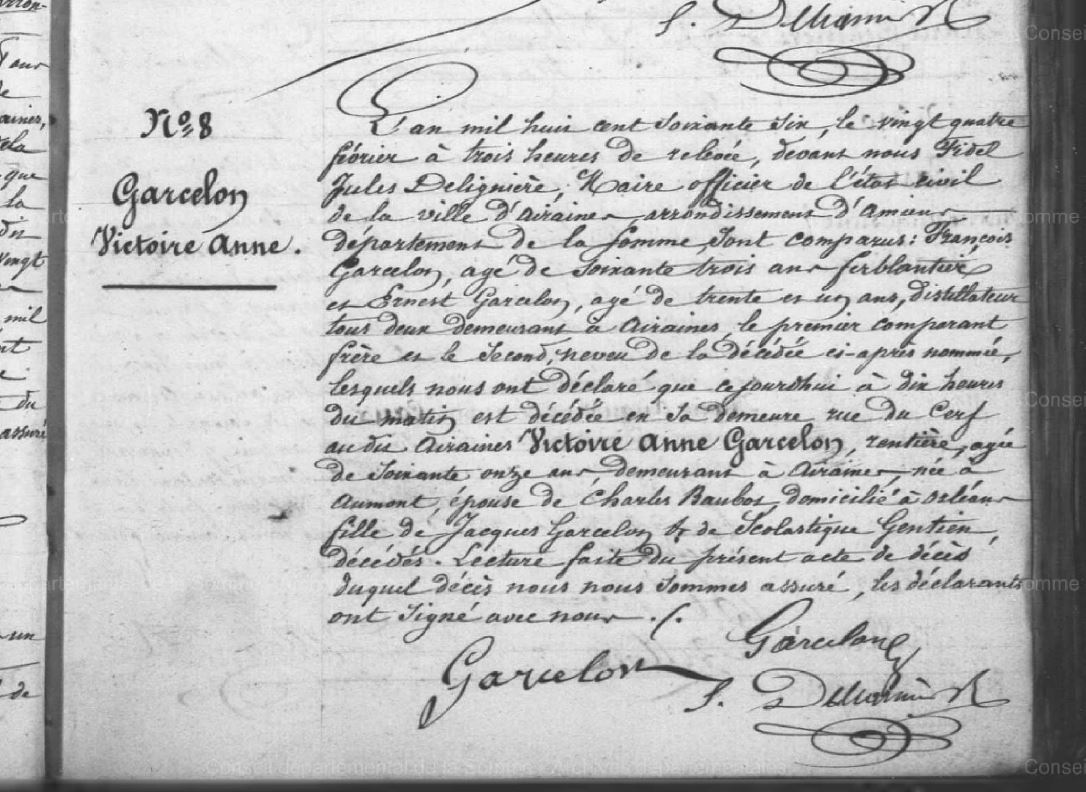 f. Delignière
N° 8
Garcelon
Victoire Anne.
L'an mil huit cent soixante six, le vingt quatre
février à trois heures de relevée, devant nous Fidel
Jules Delignière, Maire officier de l'état civil
de la ville d'Airaines, arrondissement d'Amiens
département de la Somme sont comparus: François
Garcelon, agé de soixante trois ans ferblantier,
et Ernest Garcelon, agé de trente et un ans, distillateur
tous deux demeurant à Airaines, le premier comparant
frère et le second, neveu de la décédée ci-après nommée,
lesquels nous ont déclaré que cejourdhui à dix heures
du matin est décédée en sa demeure rue du Cerf
au dit Airaines Victoire Anne Garcelon, rentière, agée
de soixante onze ans, demeurant à Airaines, née à
Aumont, épouse de Charles Baubos, domicilié à Orléans
fille de Jacques Garcelon & de Scolastique Gentien,
décédés. Lecture faite du présent acte de décès
duquel décès nous nous sommes assuré, les déclarants
ont signé avec nous ./.
Garcelon
Garcelon
f. Delignière
Conseil départemental de la Somme - Archives départementales